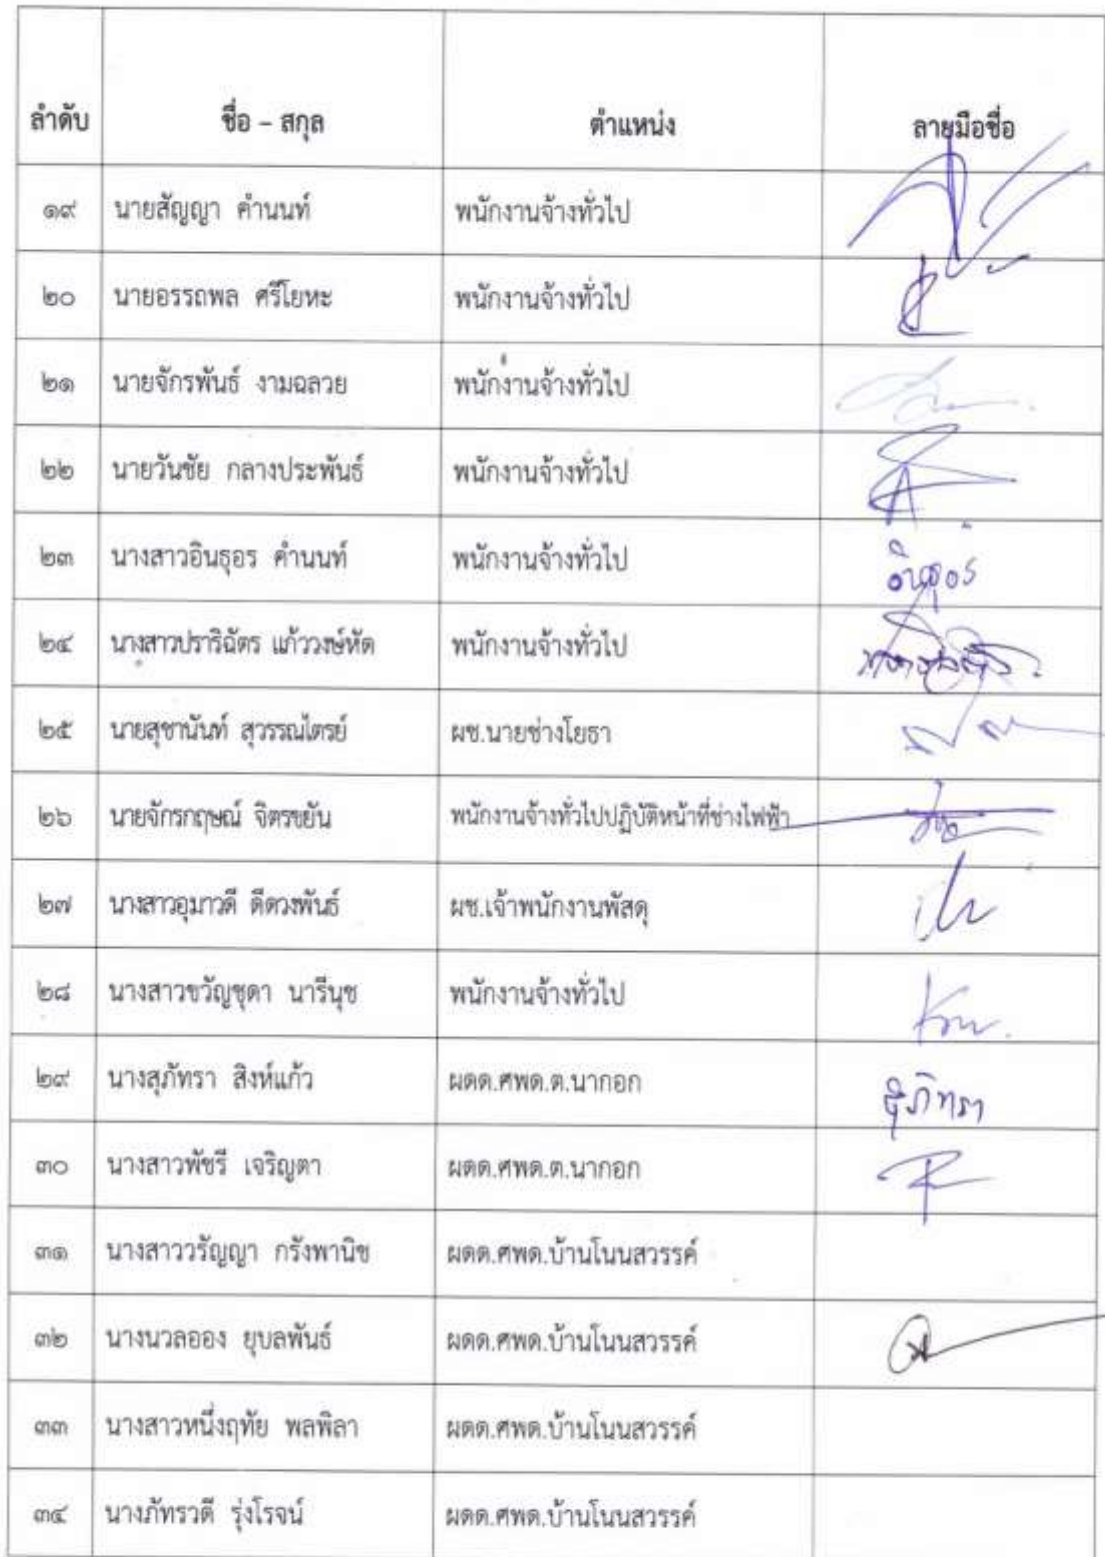 ลำดับ ชื่อ – สกุล ตำแหน่ง ลายมือชื่อ
๑๙ นายสัญญา คำนนท์ พนักงานจ้างทั่วไป
๒๐ นายอรรถพล ศรีโยหะ พนักงานจ้างทั่วไป
๒๑ นายจักรพันธ์ งามฉลวย พนักงานจ้างทั่วไป
๒๒ นายวันชัย กลางประพันธ์ พนักงานจ้างทั่วไป
๒๓ นางสาวอินธุอร คำนนท์ พนักงานจ้างทั่วไป อินธุอร
๒๔ นางสาวปราริฉัตร แก้ววงษ์หัด พนักงานจ้างทั่วไป
๒๕ นายสุชานันท์ สุวรรณไตรย์ ผช.นายช่างโยธา
๒๖ นายจักรกฤษณ์ จิตรขยัน พนักงานจ้างทั่วไปปฏิบัติหน้าที่ช่างไฟฟ้า
๒๗ นางสาวอุมาวดี ดีดวงพันธ์ ผช.เจ้าพนักงานพัสดุ
๒๘ นางสาวขวัญชุดา นารีนุช พนักงานจ้างทั่วไป
๒๙ นางสุภัทรา สิงห์แก้ว ผดด.ศพด.ต.นากอก สุภัทรา
๓๐ นางสาวพัชรี เจริญตา ผดด.ศพด.ต.นากอก
๓๑ นางสาววรัญญา กรังพานิช ผดด.ศพด.บ้านโนนสวรรค์
๓๒ นางนวลออง ยุบลพันธ์ ผดด.ศพด.บ้านโนนสวรรค์
๓๓ นางสาวหนึ่งฤทัย พลพิลา ผดด.ศพด.บ้านโนนสวรรค์
๓๔ นางภัทรวดี รุ่งโรจน์ ผดด.ศพด.บ้านโนนสวรรค์